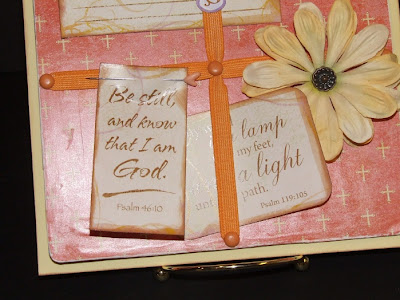 33
Be still,
and know
that I am
God.
Psalm 46:10
lamp
my feet,
a light
unto
path.
Psalm 119:105